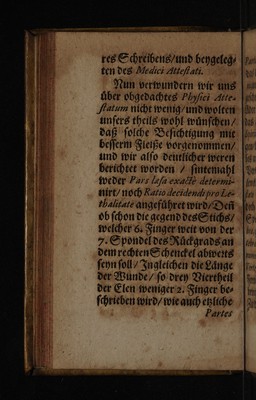 res Schreibens/und beygeleg-
ten des Medici Attestati.
Nun verwundern wir uns
über obgedachtes Physici Atte-
statum nicht wenig/und wolten
unsers theils wohl wünschen/
daß solche Besichtigung mit
besserm Fleiße vorgenommen/
und wir also deutlicher weren
berichtet worden / sintemahl
weder Pars læsa exactè determi-
nirt/noch Ratio decidendi pro Le-
thalitate angeführet wird/Deñ
ob schon die gegend des Stichs/
welcher 6. Finger weit von der
7. Spondel des Rückgrads an
dem rechten Schenckel abwerts
seyn soll / Ingleichen die Länge
der Wunde / so drey Viertheil
der Elen weniger 2. Finger be-
schrieben wird/wie auch etzliche
Partes